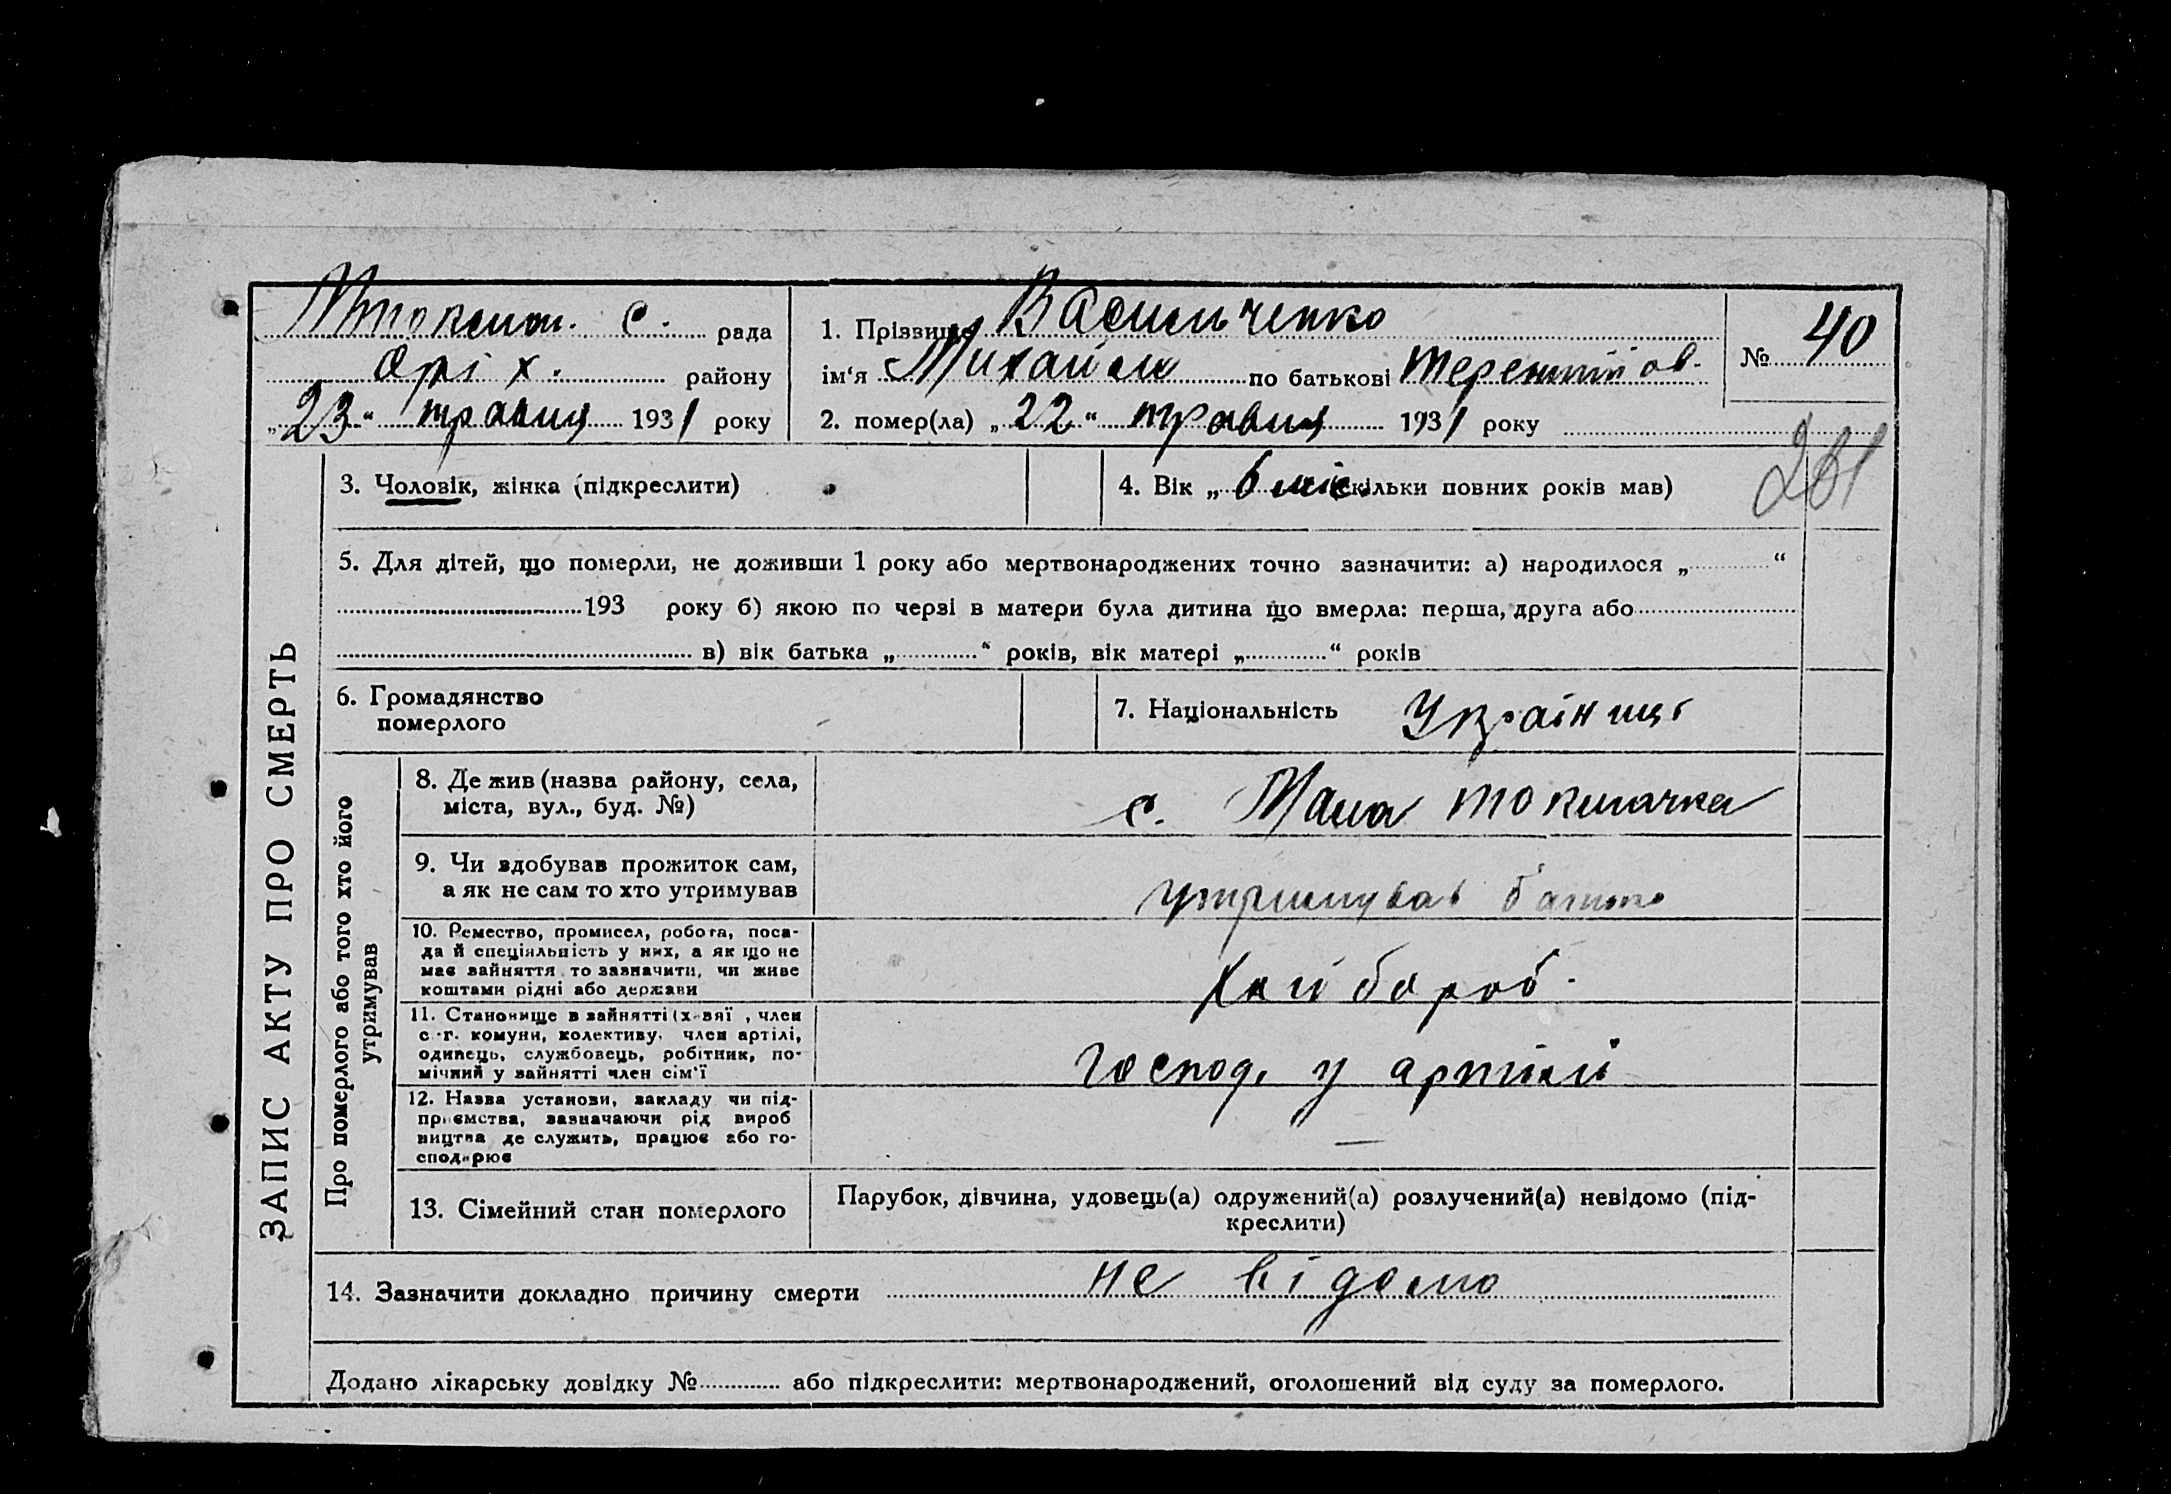 Мтокмач. с. рада
Оріх. району
„23“ травня 1931 року
1. Прізвище Васильченко
ім‘я Михайло по батькові Терентійов.
2. помер(ла) „22“ травня 1931 року
№ 40
281
ЗАПИС АКТУ ПРО СМЕРТЬ
3. Чоловік, жінка (підкреслити)
4. Вік „6 міс. скільки повних років мав)
5. Для дітей, що померли, не доживши 1 року або мертвонароджених точно зазначити: а) народилося „ “
193 року б) якою по черзі в матери була дитина що вмерла: перша, друга або
в) вік батька „ “ років, вік матері „ “ років
6. Громадянство
померлого
7. Національність Українец
Про померлого або того хто його
утримував
8. Де жив (назва району, села,
міста, вул., буд. №)
с. Мала Токмачка
9. Чи здобував прожиток сам,
а як не сам то хто утримував
утримував батько
10. Ремество, промисел, робота, поса-
да й спеціяльність у них, а як що не
має зайняття то зазначити, чи живе
коштами рідні або держави
Хлібороб.
11. Становище в зайнятті (х-вяї , член
с.-г. комуни, колективу, член артілі,
одинець, службовець, робітник, по-
мічний у зайнятті член сім‘ї
господ. у артілі
12. Назва установи, закладу чи під-
приємства, зазначаючи рід вироб
ництва де служить, працює або го-
сподарює
—
13. Сімейний стан померлого
Парубок, дівчина, удовець(а) одружений(а) розлучений(а) невідомо (під-
креслити)
14. Зазначити докладно причину смерти не відомо
Додано лікарську довідку № або підкреслити: мертвонароджений, оголошений від суду за померлого.